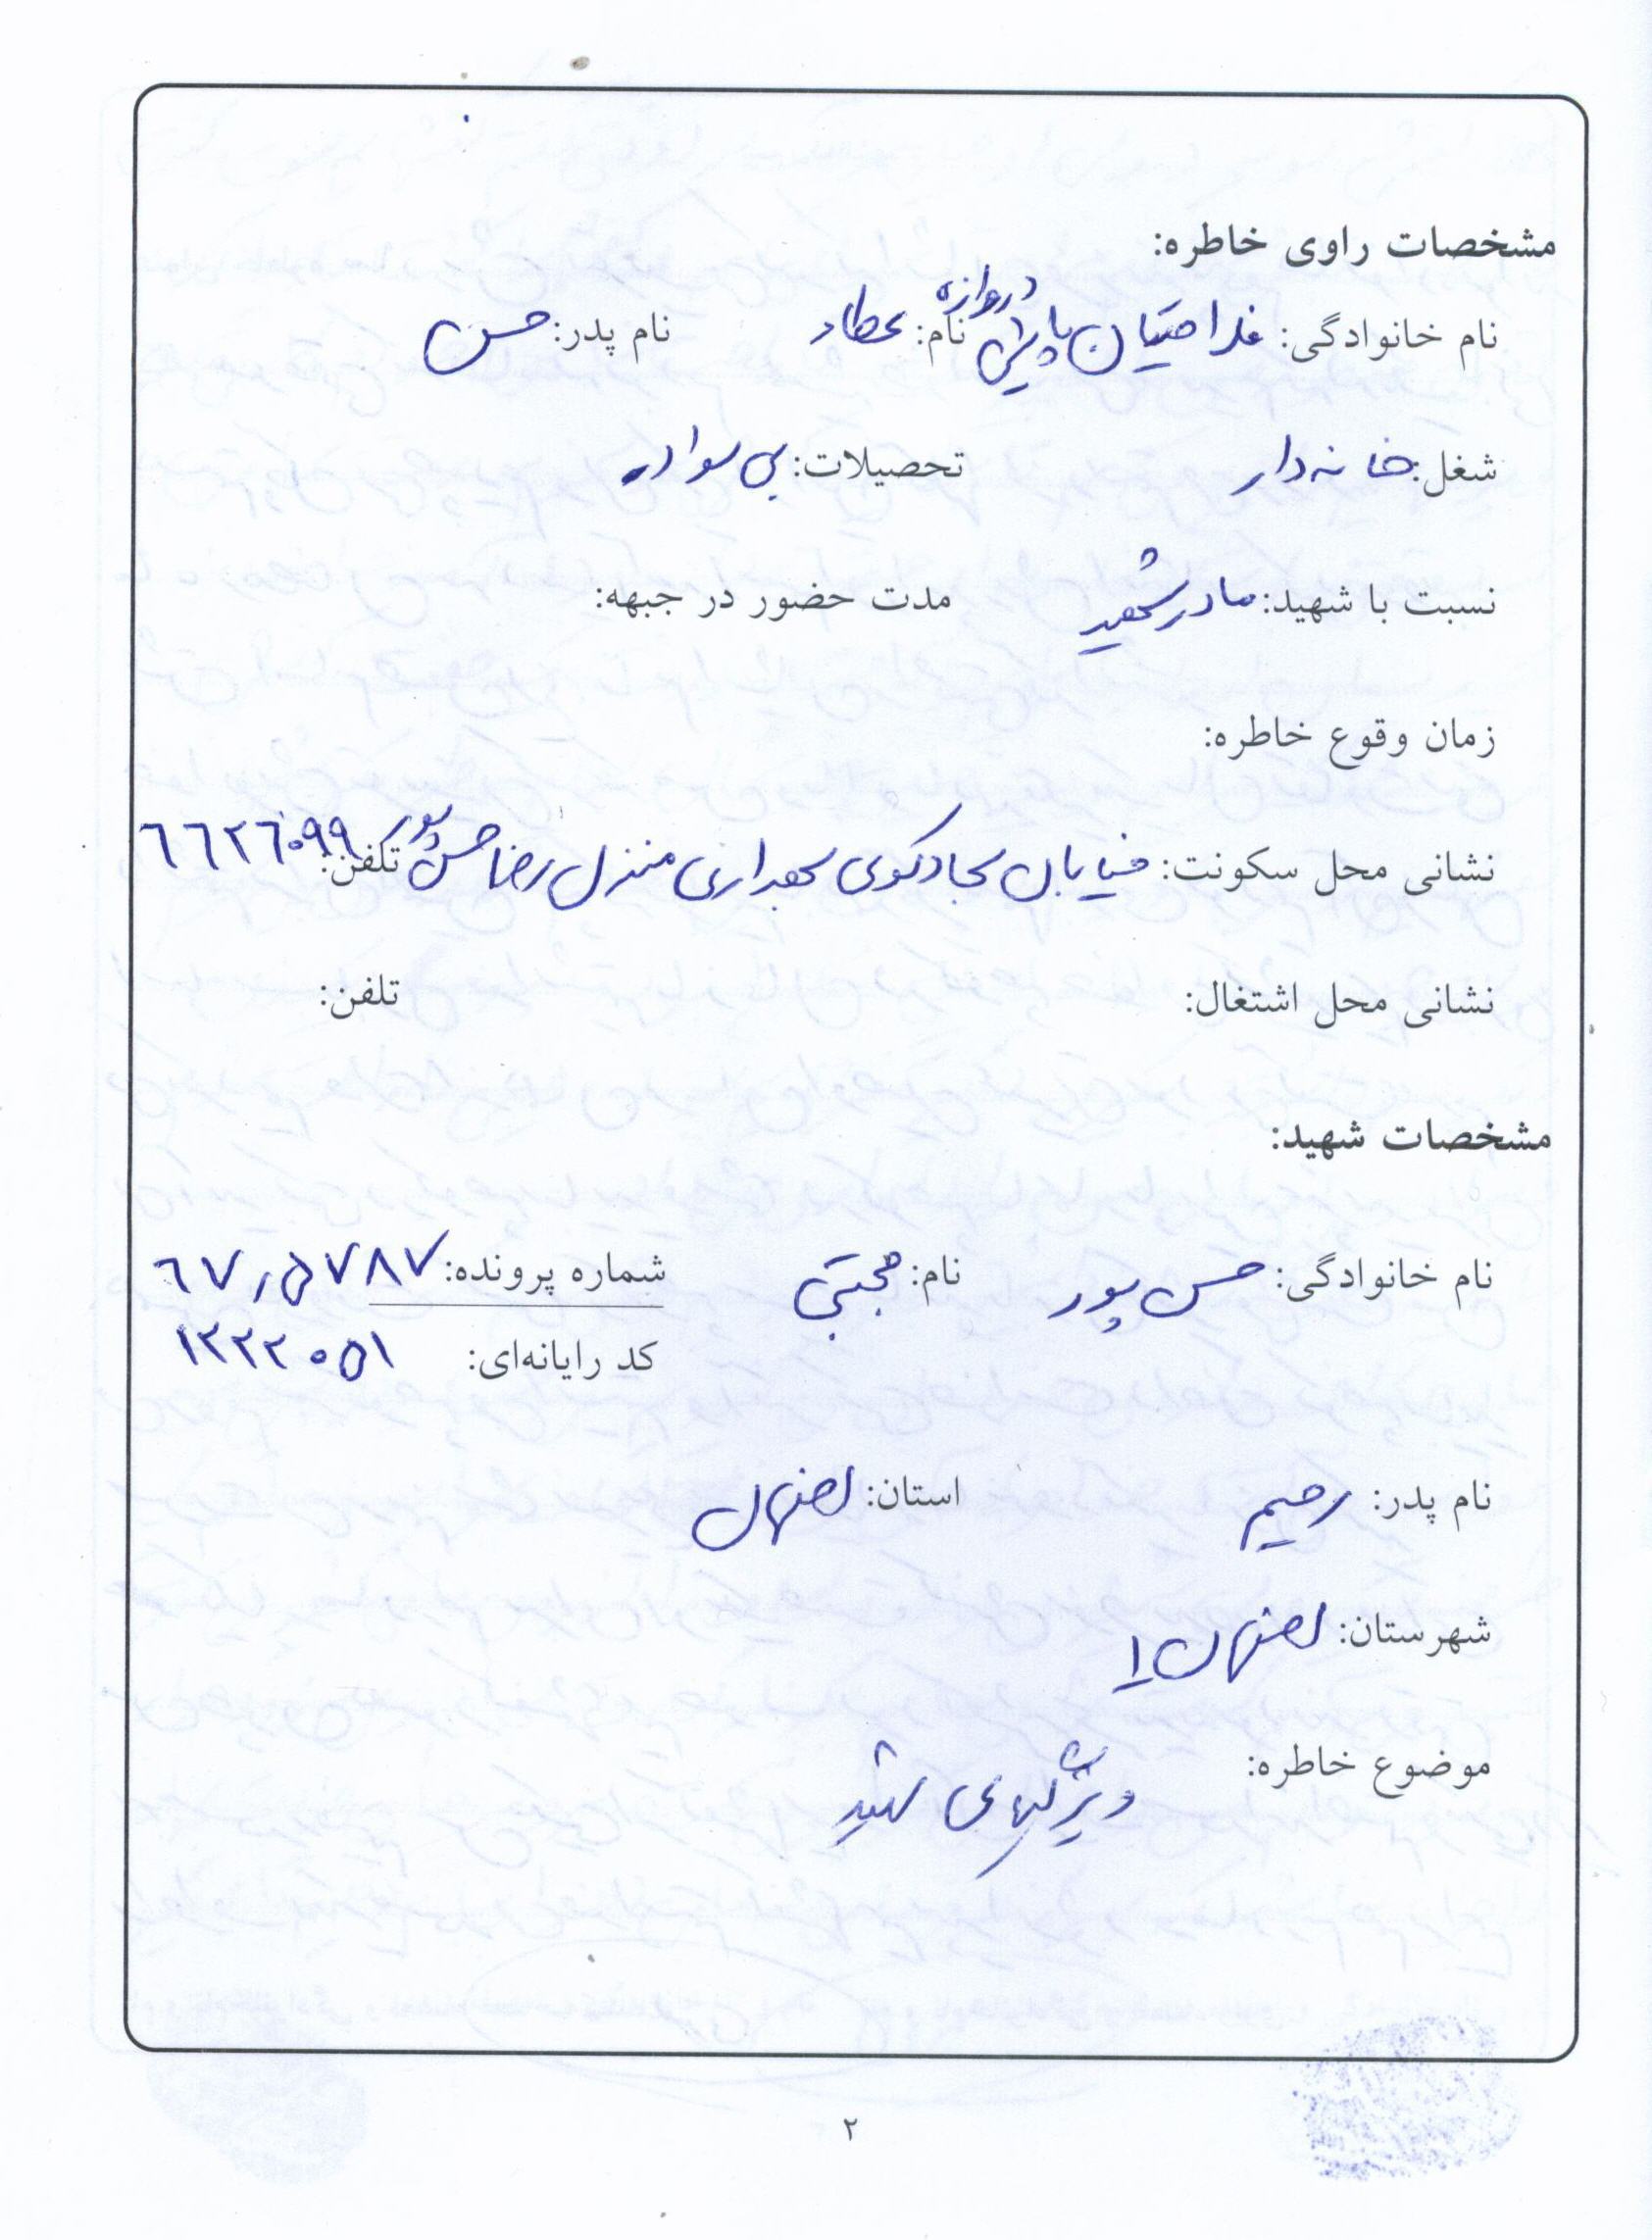 مشخصات راوی خاطره:
نام خانوادگی: دروازه نام: عطار نام پدر: حسن
شغل: خانه دار تحصیلات: بی سواد
نسبت با شهید: مادر شهید مدت حضور در جبهه:
زمان وقوع خاطره:
نشانی محل سکونت: خیابان سجاد کوی منزل رضا حسن پور تلفن: ٦٦٢٦٠٩٩
نشانی محل اشتغال: تلفن:
مشخصات شهید:
نام خانوادگی: حسن پور نام: مجتبی شماره پرونده: ٦٧٫٥٧٨٧
کد رایانه‌ای: ١٢٢٢٠٥١
نام پدر: رحیم استان: اصفهان
شهرستان: اصفهان ١
موضوع خاطره: ویژگیهای شهید
٢